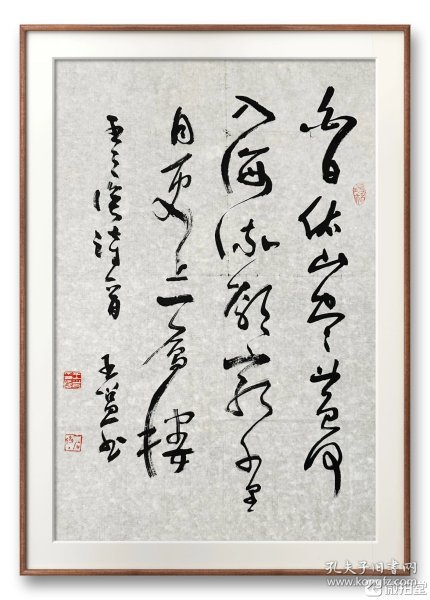 白日依山盡黄河
入海流欲窮千里
目更上一層樓
王之渙詩一首
王 书
孔夫子旧书网
www.kongfz.com
微拍堂